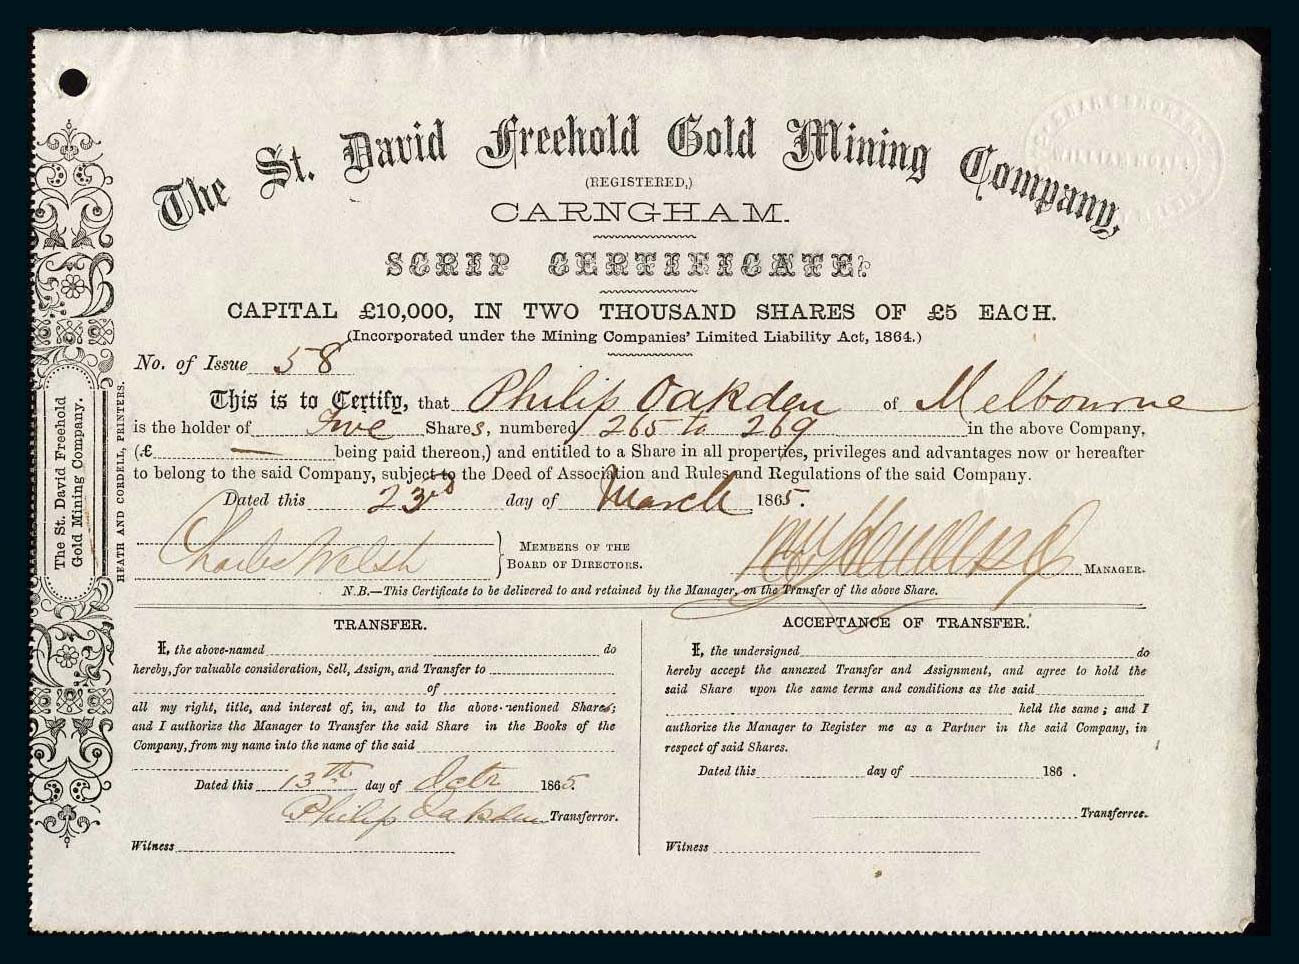 The St. David Freehold Gold Mining Company,
(REGISTERED,)
CARNGHAM.
SCRIP CERTIFICATE.
CAPITAL £10,000, IN TWO THOUSAND SHARES OF £5 EACH.
(Incorporated under the Mining Companies' Limited Liability Act, 1864.)
No. of Issue 58
This is to Certify, that Philip Oakden of Melbourne
is the holder of Five Shares, numbered 265 to 269 in the above Company,
(£ — being paid thereon,) and entitled to a Share in all properties, privileges and advantages now or hereafter
to belong to the said Company, subject to the Deed of Association and Rules and Regulations of the said Company.
Dated this 23rd day of March 1865.
Charles Welsh
MEMBERS OF THE
BOARD OF DIRECTORS.
MANAGER.
N.B.—This Certificate to be delivered to and retained by the Manager, on the Transfer of the above Share.
TRANSFER.
I, the above-named do
hereby, for valuable consideration, Sell, Assign, and Transfer to
of
all my right, title, and interest of, in, and to the above-mentioned Shares;
and I authorize the Manager to Transfer the said Share in the Books of the
Company, from my name into the name of the said
Dated this 13th day of Octr 1865.
Philip Oakden Transferror.
Witness
ACCEPTANCE OF TRANSFER.
I, the undersigned do
hereby accept the annexed Transfer and Assignment, and agree to hold the
said Share upon the same terms and conditions as the said
held the same; and I
authorize the Manager to Register me as a Partner in the said Company, in
respect of said Shares.
Dated this day of 186 .
Transferree.
Witness
The St. David Freehold
Gold Mining Company.
HEATH AND CORDELL, PRINTERS.